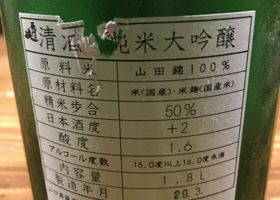 清酒 純米大吟醸
原料米 山田錦100%
原材料名 米(国産)・米麹(国産米)
精米歩合 50%
日本酒度 +2
酸度 1.6
アルコール度数 15.0度以上16.0度未満
内容量 1.8L
製造年月 29.3